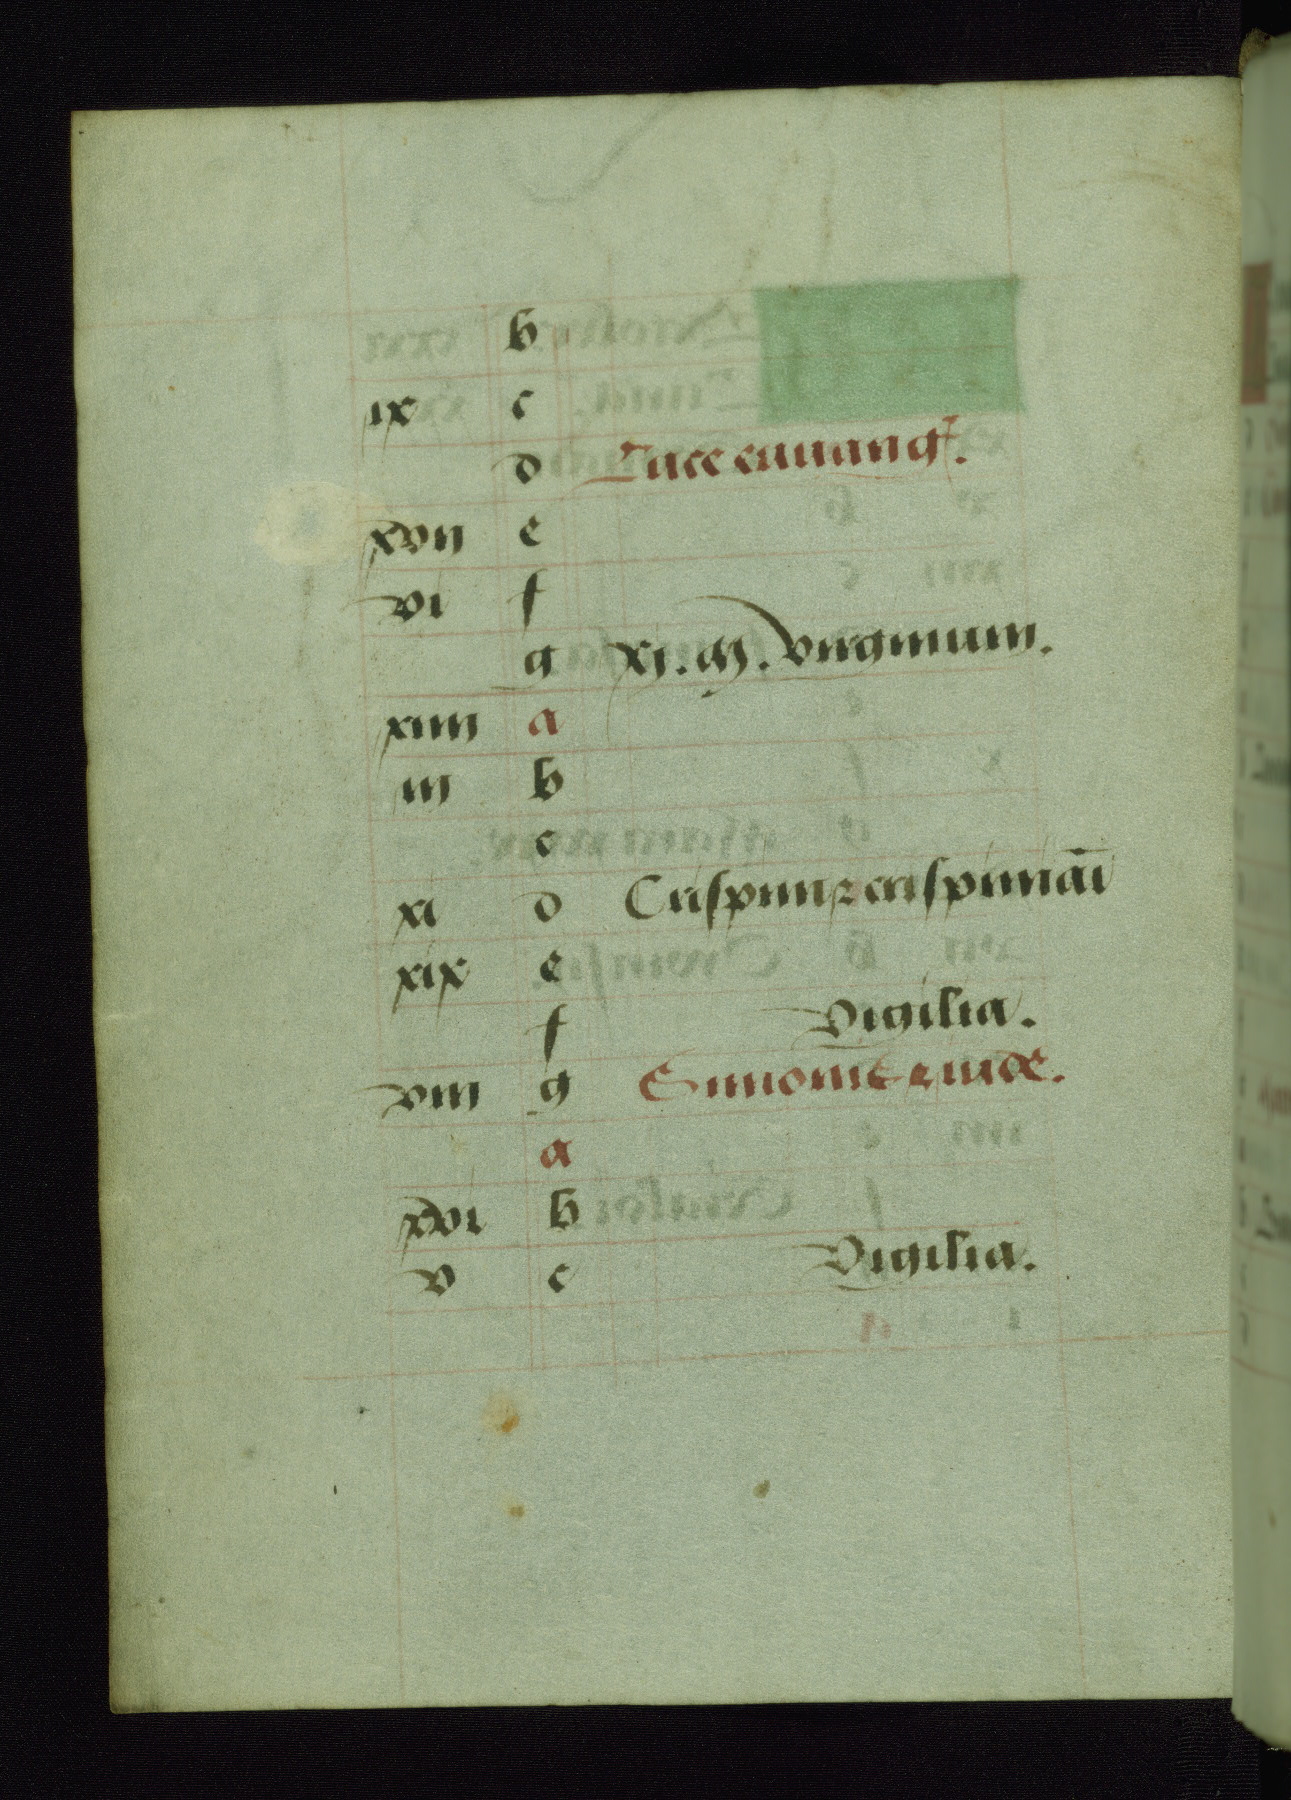 b
ix c
d Luce euuang̃.
xvii e
vi f
g xi. m. virginum.
xiiii a
iii b
c
xi d Crispini ⁊ crispiniāi
xix e
f Vigilia.
viii g Simonis ⁊ iude.
a
xvi b
v c Vigilia.